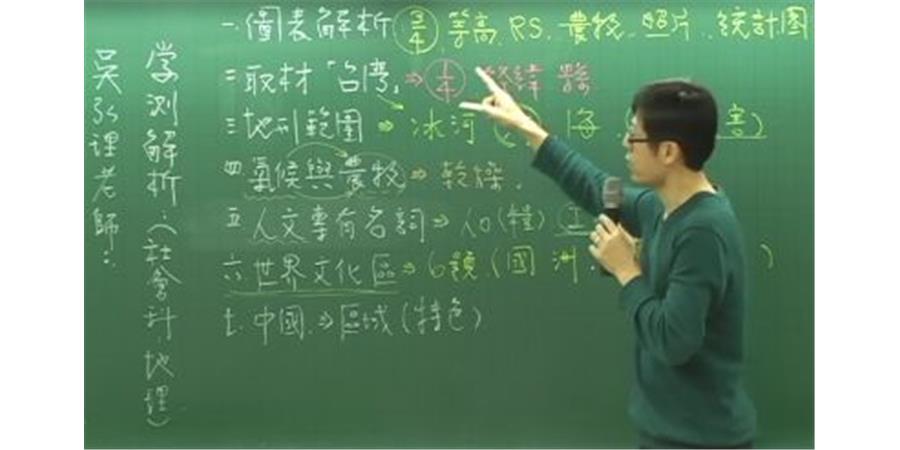 吳弘理老師:
学測解析:(社會科.地理)
一.圖表解析 3/4 等高、RS、農牧、照片、統計図
二取材「台湾」⇒ 1/4 經緯 縣
三地形範圍 ⇒ 冰河 海 害
四氣候與農牧⇒乾燥.
五.人文專有名詞⇒人口(糧)
六世界文化區⇒6號(國 洲
七.中國.⇒區域(特色)